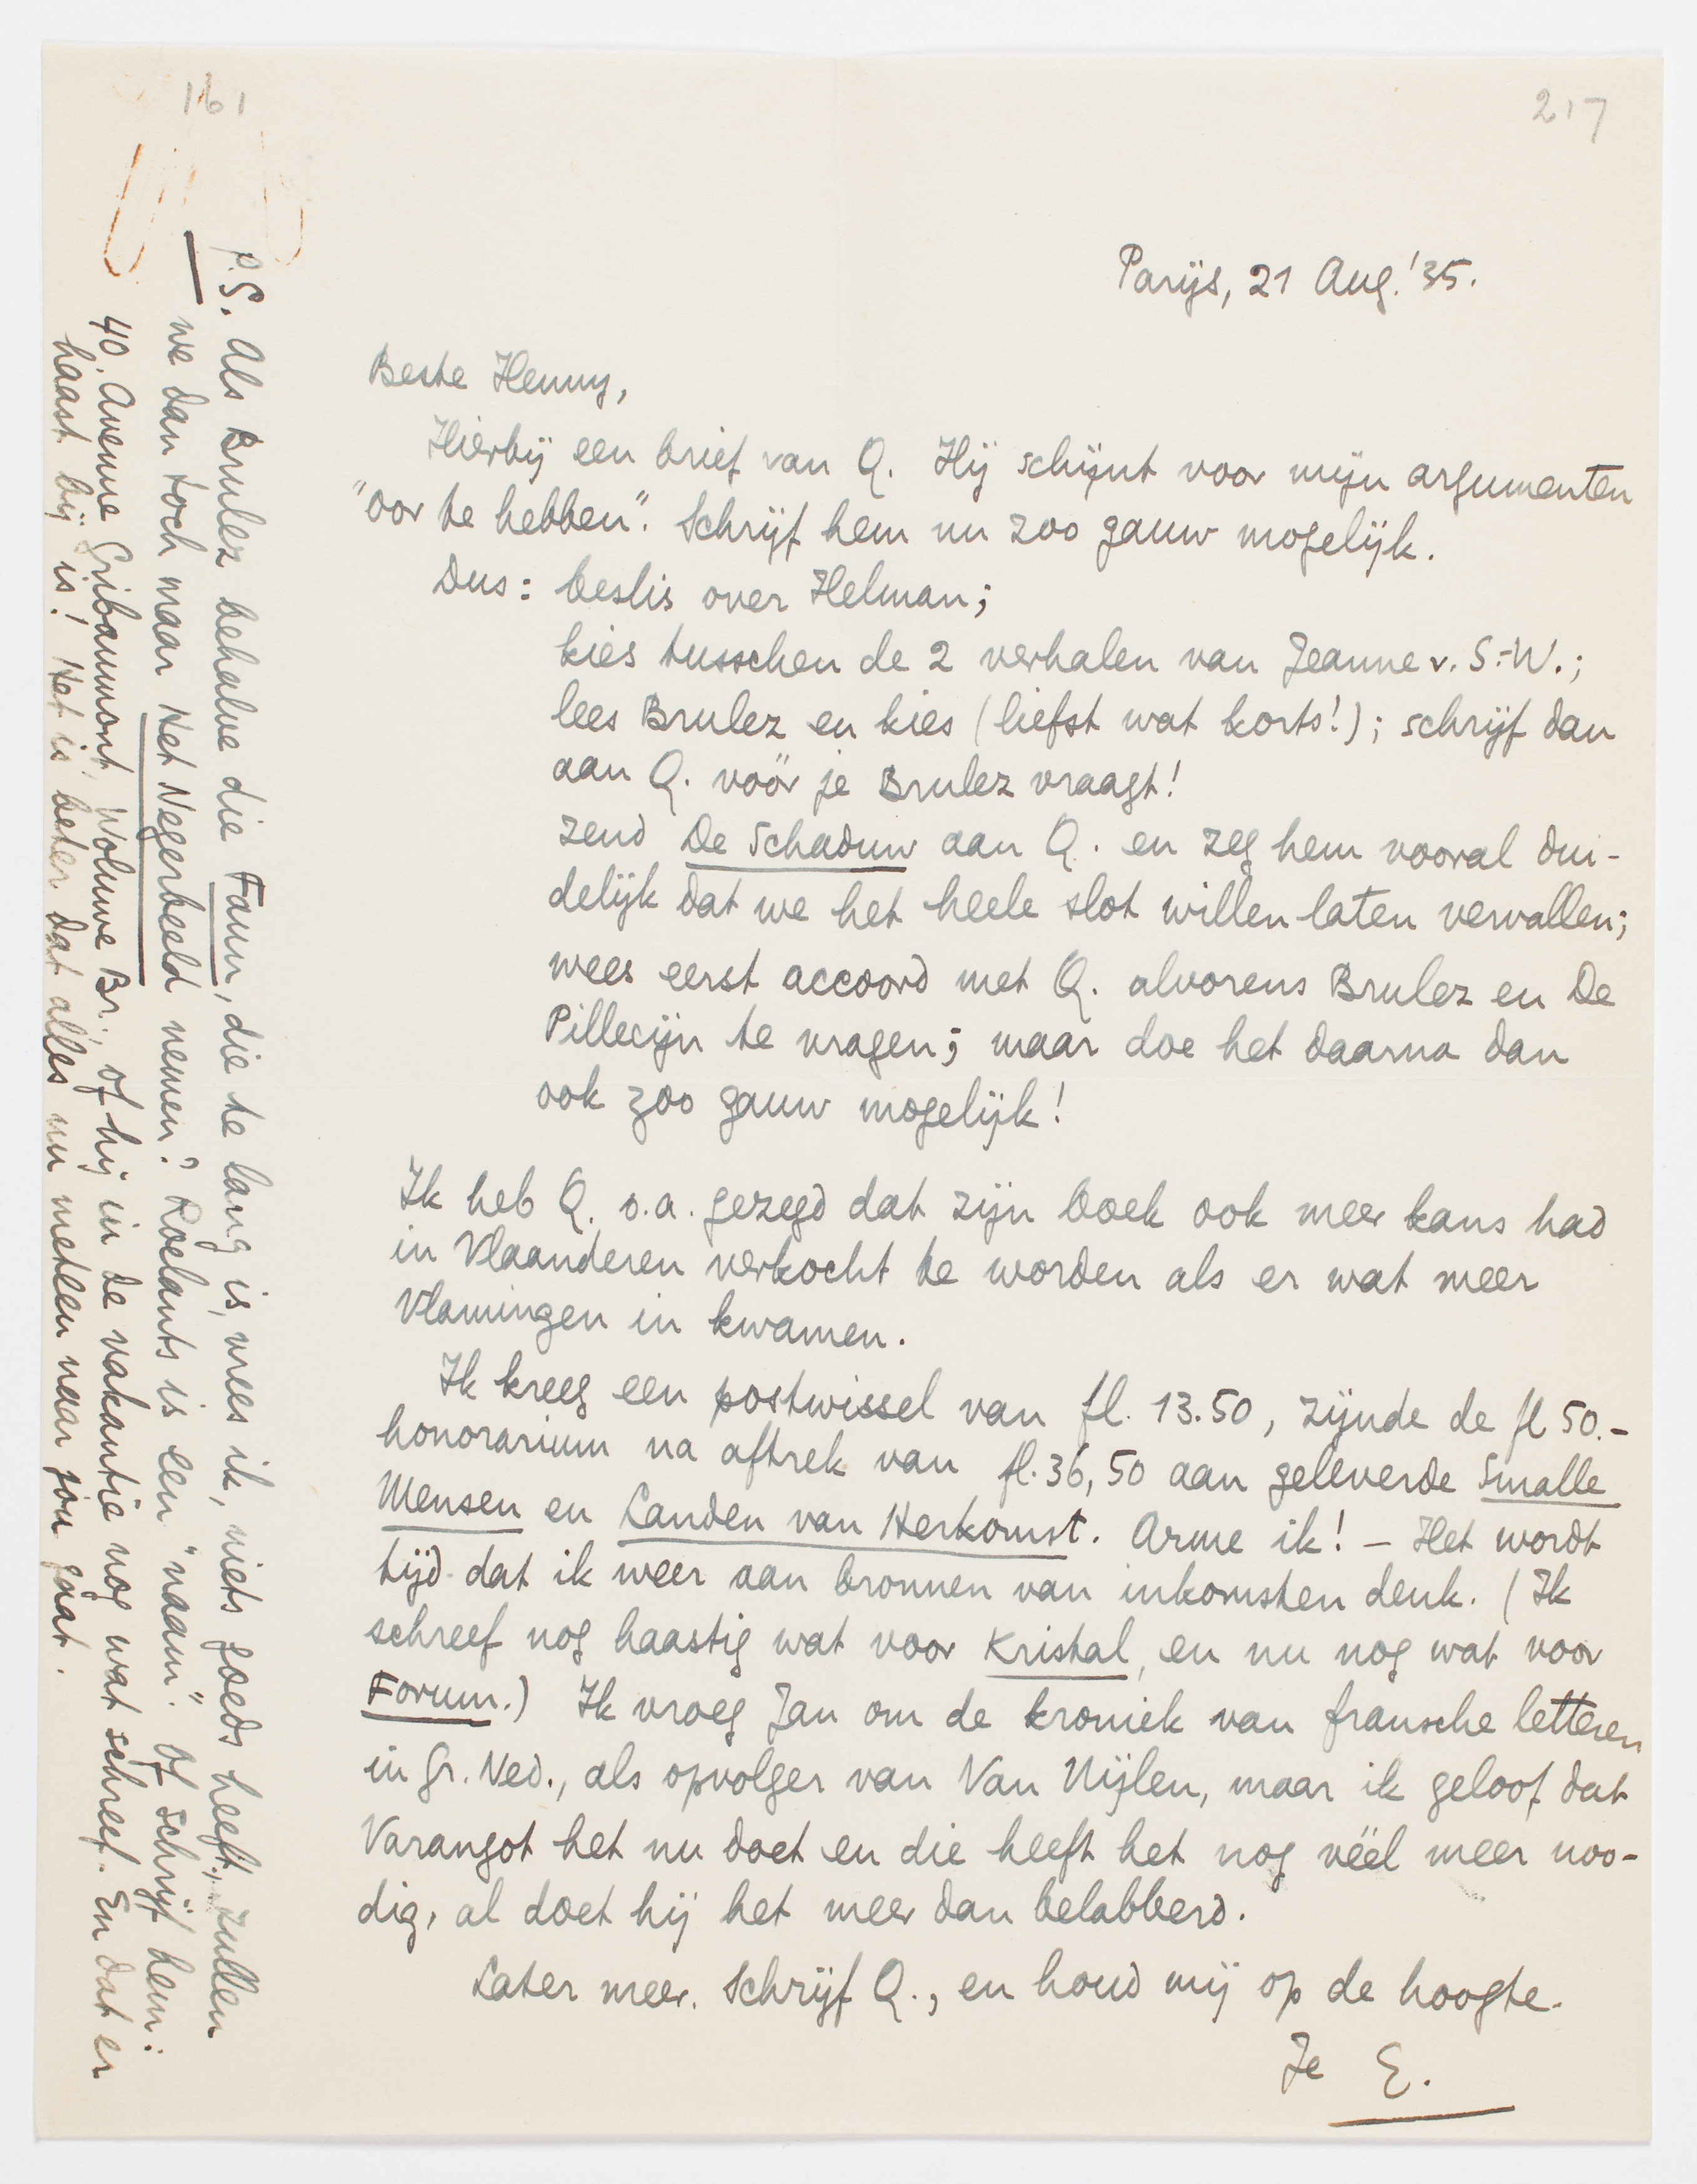 161
217
Parijs, 21 Aug. '35.
Beste Henny,
Hierbij een brief van Q. Hij schijnt voor mijn argumenten
"oor te hebben". Schrijf hem nu zoo gauw mogelijk.
Dus: beslis over Helman;
kies tusschen de 2 verhalen van Jeanne v. S.-W.;
lees Brulez en kies (liefst wat korts!); schrijf dan
aan Q. vóór je Brulez vraagt!
zend De Schaduw aan Q. en zeg hem vooral dui-
delijk dat we het heele slot willen laten vervallen;
wees eerst accoord met Q. alvorens Brulez en De
Pillecijn te vragen; maar doe het daarna dan
ook zoo gauw mogelijk!
Ik heb Q. o.a. gezegd dat zijn boek ook meer kans had
in Vlaanderen verkocht te worden als er wat meer
Vlamingen in kwamen.
Ik kreeg een postwissel van fl. 13.50, zijnde de fl 50.-
honorarium na aftrek van fl. 36,50 aan geleverde Smalle
Mensen en Landen van Herkomst. Arme ik! - Het wordt
tijd dat ik weer aan bronnen van inkomsten denk. (Ik
schreef nog haastig wat voor Kristal, en nu nog wat voor
Forum.) Ik vroeg Jan om de kroniek van fransche letteren
in Gr. Ned., als opvolger van Van Nijlen, maar ik geloof dat
Varangot het nu doet en die heeft het nog véél meer noo-
dig, al doet hij het meer dan belabberd.
Later meer. Schrijf Q., en houd mij op de hoogte.
Je E.
P.S. Als Brulez behalve die Faun, die te lang is, vrees ik, niets goeds heeft, zullen
we dan toch maar Het Negerbeeld nemen? Roelants is een "naam". Of schrijf hem:
40, Avenue Gribaumont, Woluwe Br., of hij in de vakantie nog wat schreef. En dat er
haast bij is! Het is beter dat alles nu meteen naar jou gaat.